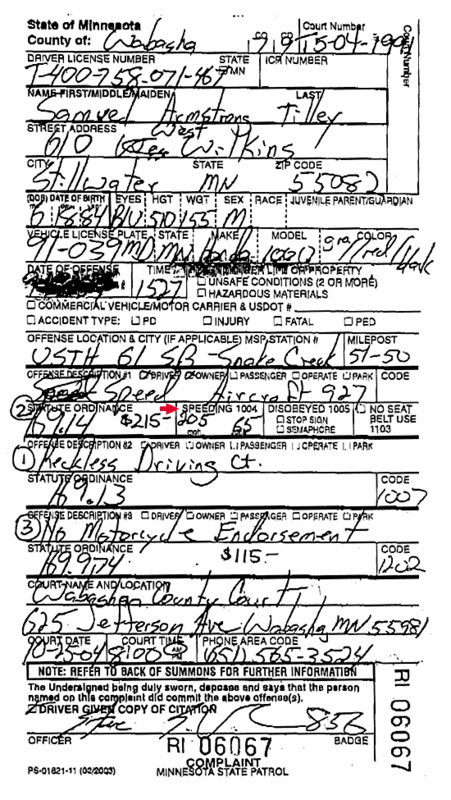 State of Minnesota
County of: Wabasha
Court Number
County Number
DRIVER LICENSE NUMBER STATE ICR NUMBER
T-400-758-071-467 MN
NAME-FIRST/MIDDLE/MAIDEN LAST
Samuel Armstrong Tilley
STREET ADDRESS West
610 Wilkins
CITY STATE ZIP CODE
Stillwater MN 55082
(DOB) DATE OF BIRTH EYES HGT WGT SEX RACE JUVENILE PARENT/GUARDIAN
6 18 84 BLU 510 155 M
VEHICLE LICENSE PLATE STATE MAKE MODEL COLOR
91-039 MD MN Honda gra/red/black
DATE OF OFFENSE TIME LIFE OR PROPERTY
1527 UNSAFE CONDITIONS (2 OR MORE)
HAZARDOUS MATERIALS
COMMERCIAL VEHICLE/MOTOR CARRIER & USDOT #
ACCIDENT TYPE: PD INJURY FATAL PED
OFFENSE LOCATION & CITY (IF APPLICABLE) MSP STATION # MILEPOST
USTH 61 SB Snake Creek 51-50
OFFENSE DESCRIPTION #1 DRIVER OWNER PASSENGER OPERATE PARK CODE
Speed Aircraft 927
2 STATUTE ORDINANCE SPEEDING 1004 DISOBEYED 1005 NO SEAT BELT USE 1103
169.14 $215- 205 65 STOP SIGN
SEMAPHORE
OFFENSE DESCRIPTION #2 DRIVER OWNER PASSENGER OPERATE PARK
1 Reckless Driving Ct.
STATUTE ORDINANCE CODE
169.13 1007
OFFENSE DESCRIPTION #3 DRIVER OWNER PASSENGER OPERATE PARK
3 No Motorcycle Endorsement
STATUTE ORDINANCE $115- CODE
169.974 1202
COURT NAME AND LOCATION
Wabasha County Court
625 Jefferson Ave Wabasha MN 55981
COURT DATE COURT TIME PHONE AREA CODE
10-25-04 8:00 (651) 565-3524
NOTE: REFER TO BACK OF SUMMONS FOR FURTHER INFORMATION
The Undersigned being duly sworn, deposes and says that the person
named on this complaint did commit the above offense(s).
DRIVER GIVEN COPY OF CITATION
OFFICER BADGE
RI 06067
RI 06067
COMPLAINT
PS-01821-11 (02/2003) MINNESOTA STATE PATROL